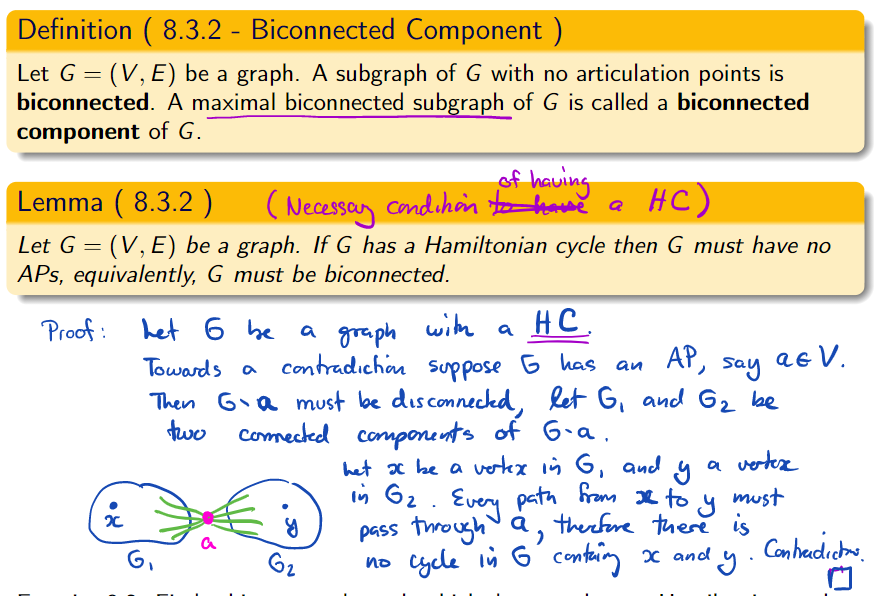 Definition ( 8.3.2 - Biconnected Component )
Let G = (V, E) be a graph. A subgraph of G with no articulation points is
biconnected. A maximal biconnected subgraph of G is called a biconnected
component of G.
of having
Lemma ( 8.3.2 ) (Necessary condition to have a HC)
Let G = (V, E) be a graph. If G has a Hamiltonian cycle then G must have no
APs, equivalently, G must be biconnected.
Proof: Let G be a graph with a HC.
Towards a contradiction suppose G has an AP, say a ∈ V.
Then G∖a must be disconnected, let G₁ and G₂ be
two connected components of G∖a.
Let x be a vertex in G₁ and y a vertex
in G₂. Every path from x to y must
pass through a, therefore there is
no cycle in G containg x and y. Contradiction.
x y
a
G₁ G₂